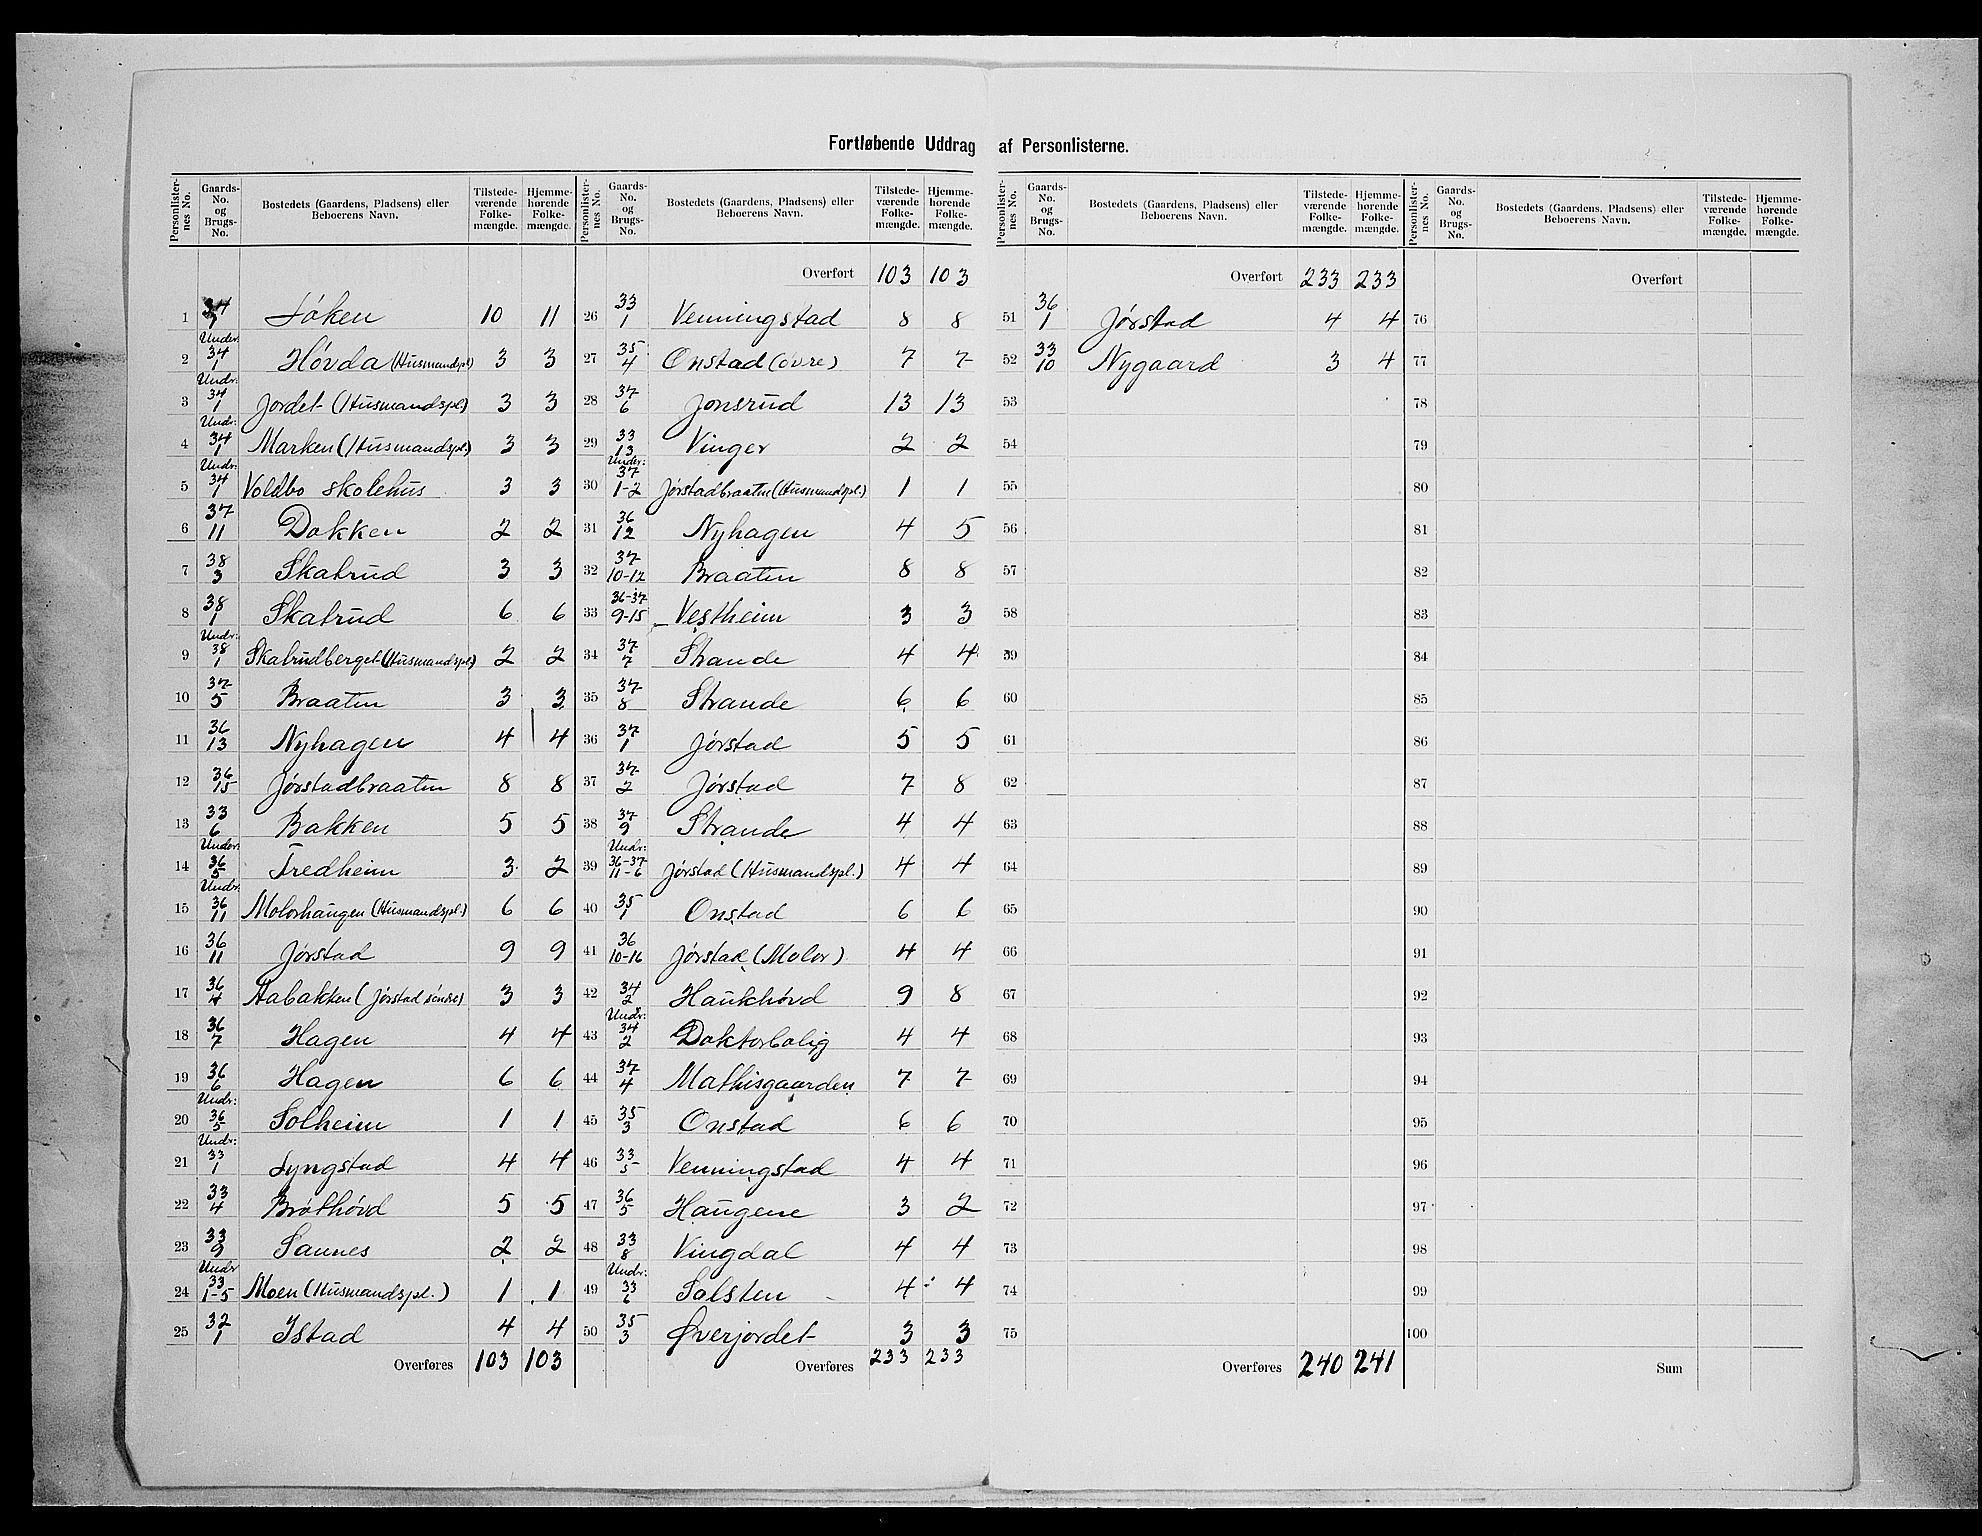 Fortløbende Uddrag af Personlisterne.
Personlister-nes No. Gaards-No. og Brugs-No. Bostedets (Gaardens, Pladsens) eller Beboerens Navn. Tilstede-værende Folke-mængde. Hjemme-hørende Folke-mængde.
1 34/1 Løken 10 11
2 Under: 34/1 Høvda (Husmandspl) 3 3
3 Undr: 34/1 Jordet (Husmandspl) 3 3
4 Undr: 34/1 Marken (Husmandspl.) 3 3
5 Undr: 34/1 Voldbo skolehus 3 3
6 37/11 Dokken 2 2
7 38/3 Skatrud 3 3
8 38/1 Skatrud 6 6
9 Undr: 38/1 Skatrudberget (Husmandspl) 2 2
10 37/5 Braaten 3 3
11 36/13 Nyhagen 4 4
12 36/15 Jørstadbraaten 8 8
13 33/6 Bakken 5 5
14 Under: 36/5 Fredheim 3 2
15 Undr: 36/11 Molorhaugen (Husmandspl.) 6 6
16 36/11 Jørstad 9 9
17 36/4 Aabakken (Jørstad søndre) 3 3
18 36/7 Hagen 4 4
19 36/6 Hagen 6 6
20 Undr: 36/5 Solheim 1 1
21 Undr: 33/1 Lyngstad 4 4
22 33/4 Brøthøvd 5 5
23 33/9 Sannes 2 2
24 Undr 33/1-5 Moen (Husmandspl.) 1 1
25 32/1 Istad 4 4
Overføres 103 103
Personlister-nes No. Gaards-No. og Brugs-No. Bostedets (Gaardens, Pladsens) eller Beboerens Navn. Tilstede-værende Folke-mængde. Hjemme-hørende Folke-mængde.
Overført 103 103
26 33/1 Venningstad 8 8
27 35/4 Onstad (øvre) 7 7
28 37/6 Jonsrud 13 13
29 33/13 Vinger 2 2
30 Under: 37/1-2 Jørstadbraaten (Husmandspl.) 1 1
31 36/12 Nyhagen 4 5
32 37/10-12 Braaten 8 8
33 36-37/9-15 Vestheim 3 3
34 37/7 Strande 4 4
35 37/8 Strande 6 6
36 37/1 Jørstad 5 5
37 37/2 Jørstad 7 8
38 37/9 Strande 4 4
39 Undr: 36-37/11-6 Jørstad (Husmandspl.) 4 4
40 35/1 Onstad 6 6
41 36/10-16 Jørstad (Molor) 4 4
42 34/2 Haukhøvd 9 8
43 Undr: 34/2 Doktorbolig 4 4
44 37/4 Mathisgaarden 7 7
45 35/3 Onstad 6 6
46 33/5 Venningstad 4 4
47 36/5 Haugene 3 2
48 33/8 Vingdal 4 4
49 Undr: 33/6 Solsten 4 4
50 35/3 Øverjordet 3 3
Overføres 233 233
Personlister-nes No. Gaards-No. og Brugs-No. Bostedets (Gaardens, Pladsens) eller Beboerens Navn. Tilstede-værende Folke-mængde. Hjemme-hørende Folke-mængde.
Overført 233 233
51 36/1 Jørstad 4 4
52 33/10 Nygaard 3 4
53
54
55
56
57
58
59
60
61
62
63
64
65
66
67
68
69
70
71
72
73
74
75
Overføres 240 241
Personlister-nes No. Gaards-No. og Brugs-No. Bostedets (Gaardens, Pladsens) eller Beboerens Navn. Tilstede-værende Folke-mængde. Hjemme-hørende Folke-mængde.
Overført
76
77
78
79
80
81
82
83
84
85
86
87
88
89
90
91
92
93
94
95
96
97
98
99
100
Sum